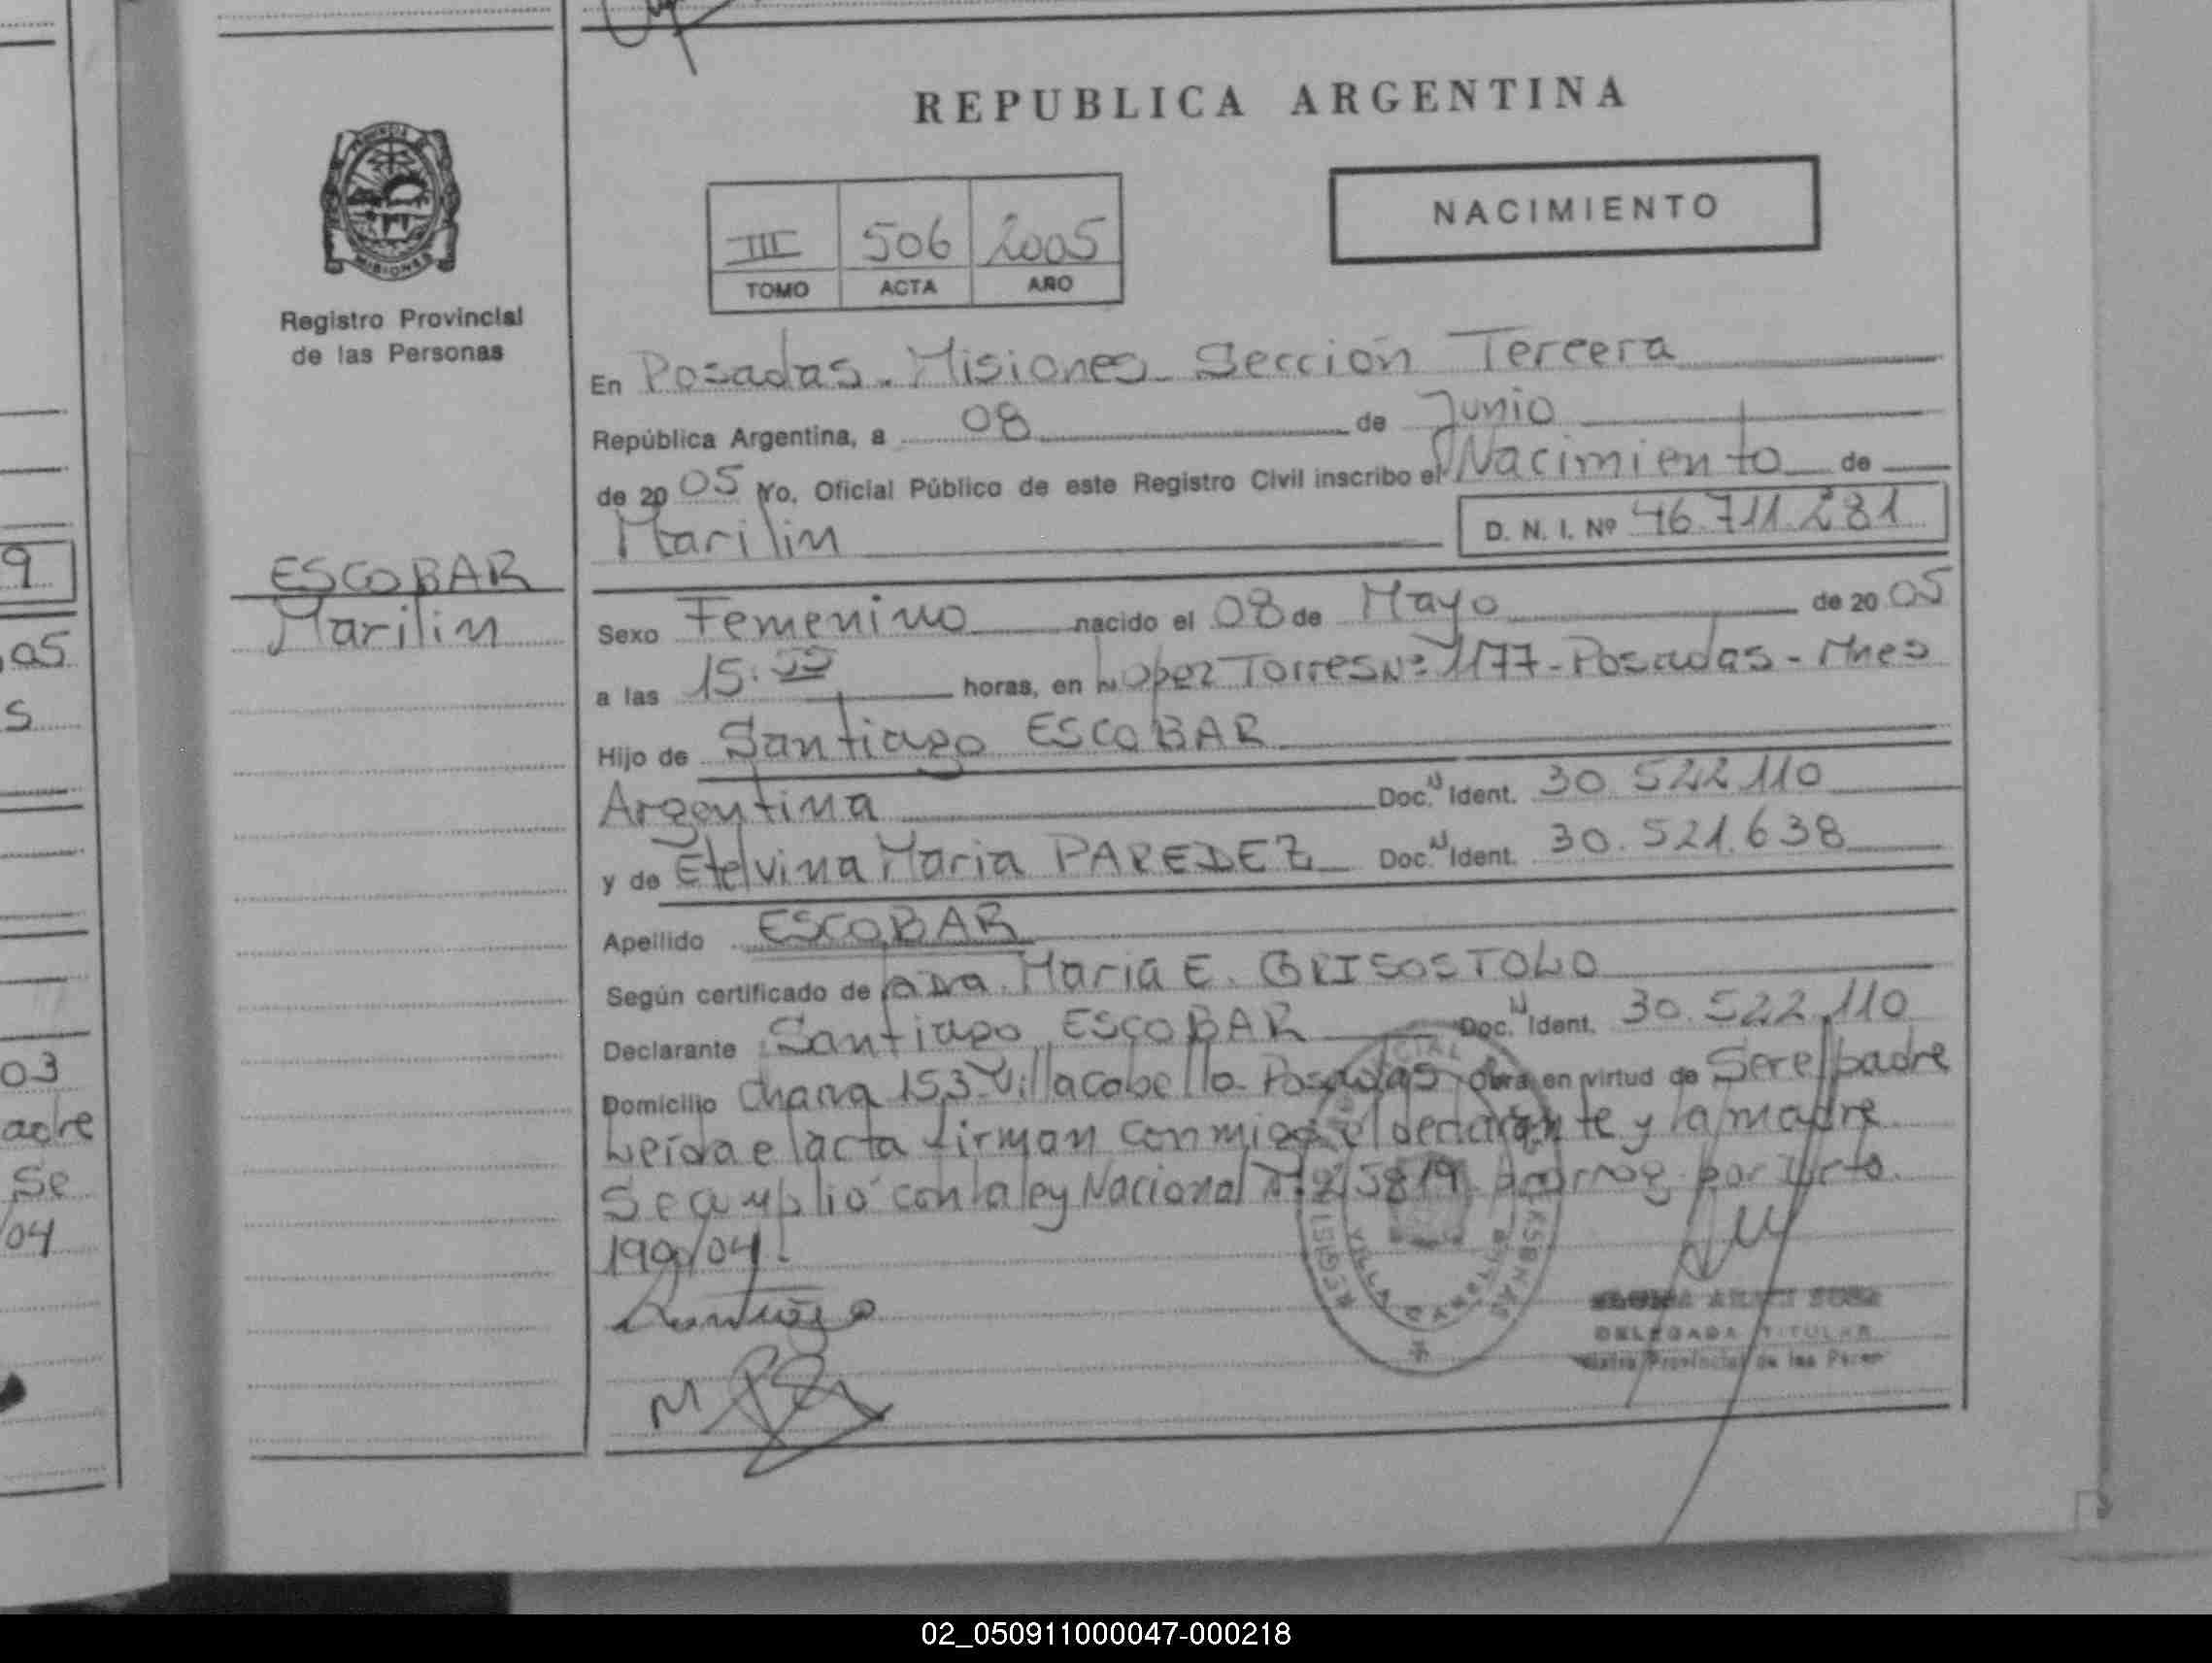 REPUBLICA ARGENTINA
NACIMIENTO
III 506 2005
TOMO ACTA AÑO
PROVINCIA
MISIONES
Registro Provincial
de las Personas
ESCOBAR
Marilin
En Posadas - Misiones - Sección Tercera
República Argentina, a 08 de Junio
de 20 05 Yo, Oficial Público de este Registro Civil inscribo el Nacimiento de
Marilin D. N. I. Nº 46.711.281
Sexo Femenino nacido el 08 de Mayo de 20 05
a las 15: horas, en Lopez Torres Nº 1177 - Posadas - Mnes
Hijo de Santiago ESCOBAR
Argentina Doc. Ident. 30.522.110
y de Etelvina Maria PAREDEZ Doc. Ident. 30.521.638
Apellido ESCOBAR
Según certificado de la Dra. Maria E. GRISOSTOMO
Declarante Santiago ESCOBAR Doc. Ident. 30.522.110
Domicilio Chana 153 Villa cabello - Posadas Obra en virtud de Ser el padre
Leida el acta firman conmigo el declarante y la madre
Se cumplió con la ley Nacional Nº 25819 por
190/04
Santiago
DELEGADA TITULAR
Provincial de las Person
9
05
S
03
adre
Se
/04
02_050911000047-000218